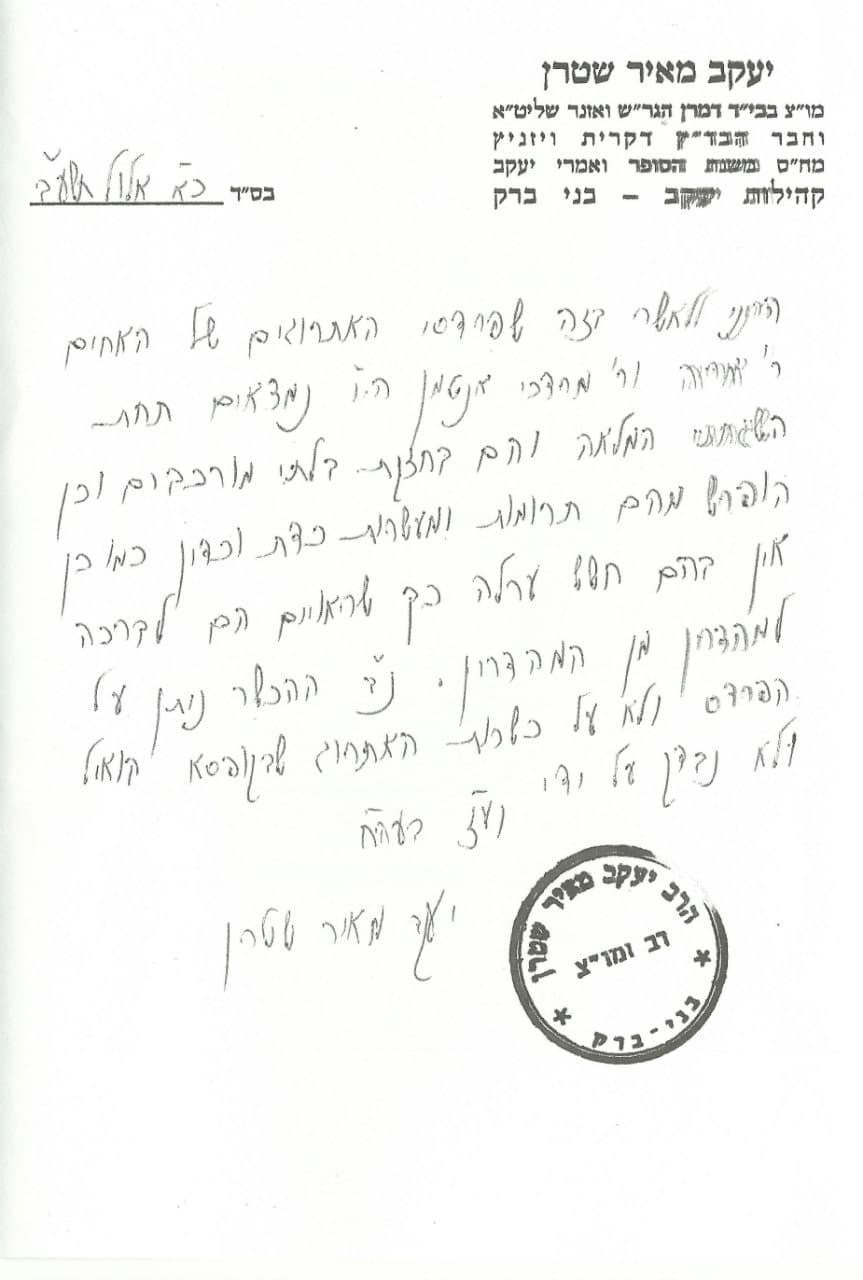 יעקב מאיר שטרן
מו"צ בבי"ד דמרן הגר"ש ואזנר שליט"א
וחבר הבד"ץ דקרית ויזניץ
מח"ס משנת הסופר ואמרי יעקב
קהילות יעקב – בני ברק
בס"ד כ"א אלול תשע"ב
הנני לאשר בזה שפרדסי האתרוגים של האחים
ר' ור' מרדכי אנטמן הי"ו נמצאים תחת
השגחתי המלאה והם בחזקת בלתי מורכבים וכן
הופרש מהם תרומות ומעשרות כדת וכדין כמו כן
אין בהם חשש ערלה כך שראויים הם לברכה
למהדרין מן המהדרין. נ"ב ההכשר ניתן על
הפרדס ולא על כשרות האתרוג שבקופסא
ולא נבדק על ידי וע"ז בעה"ח
יעקב מאיר שטרן
הרב יעקב מאיר שטרן
רב ומו"צ
בני-ברק